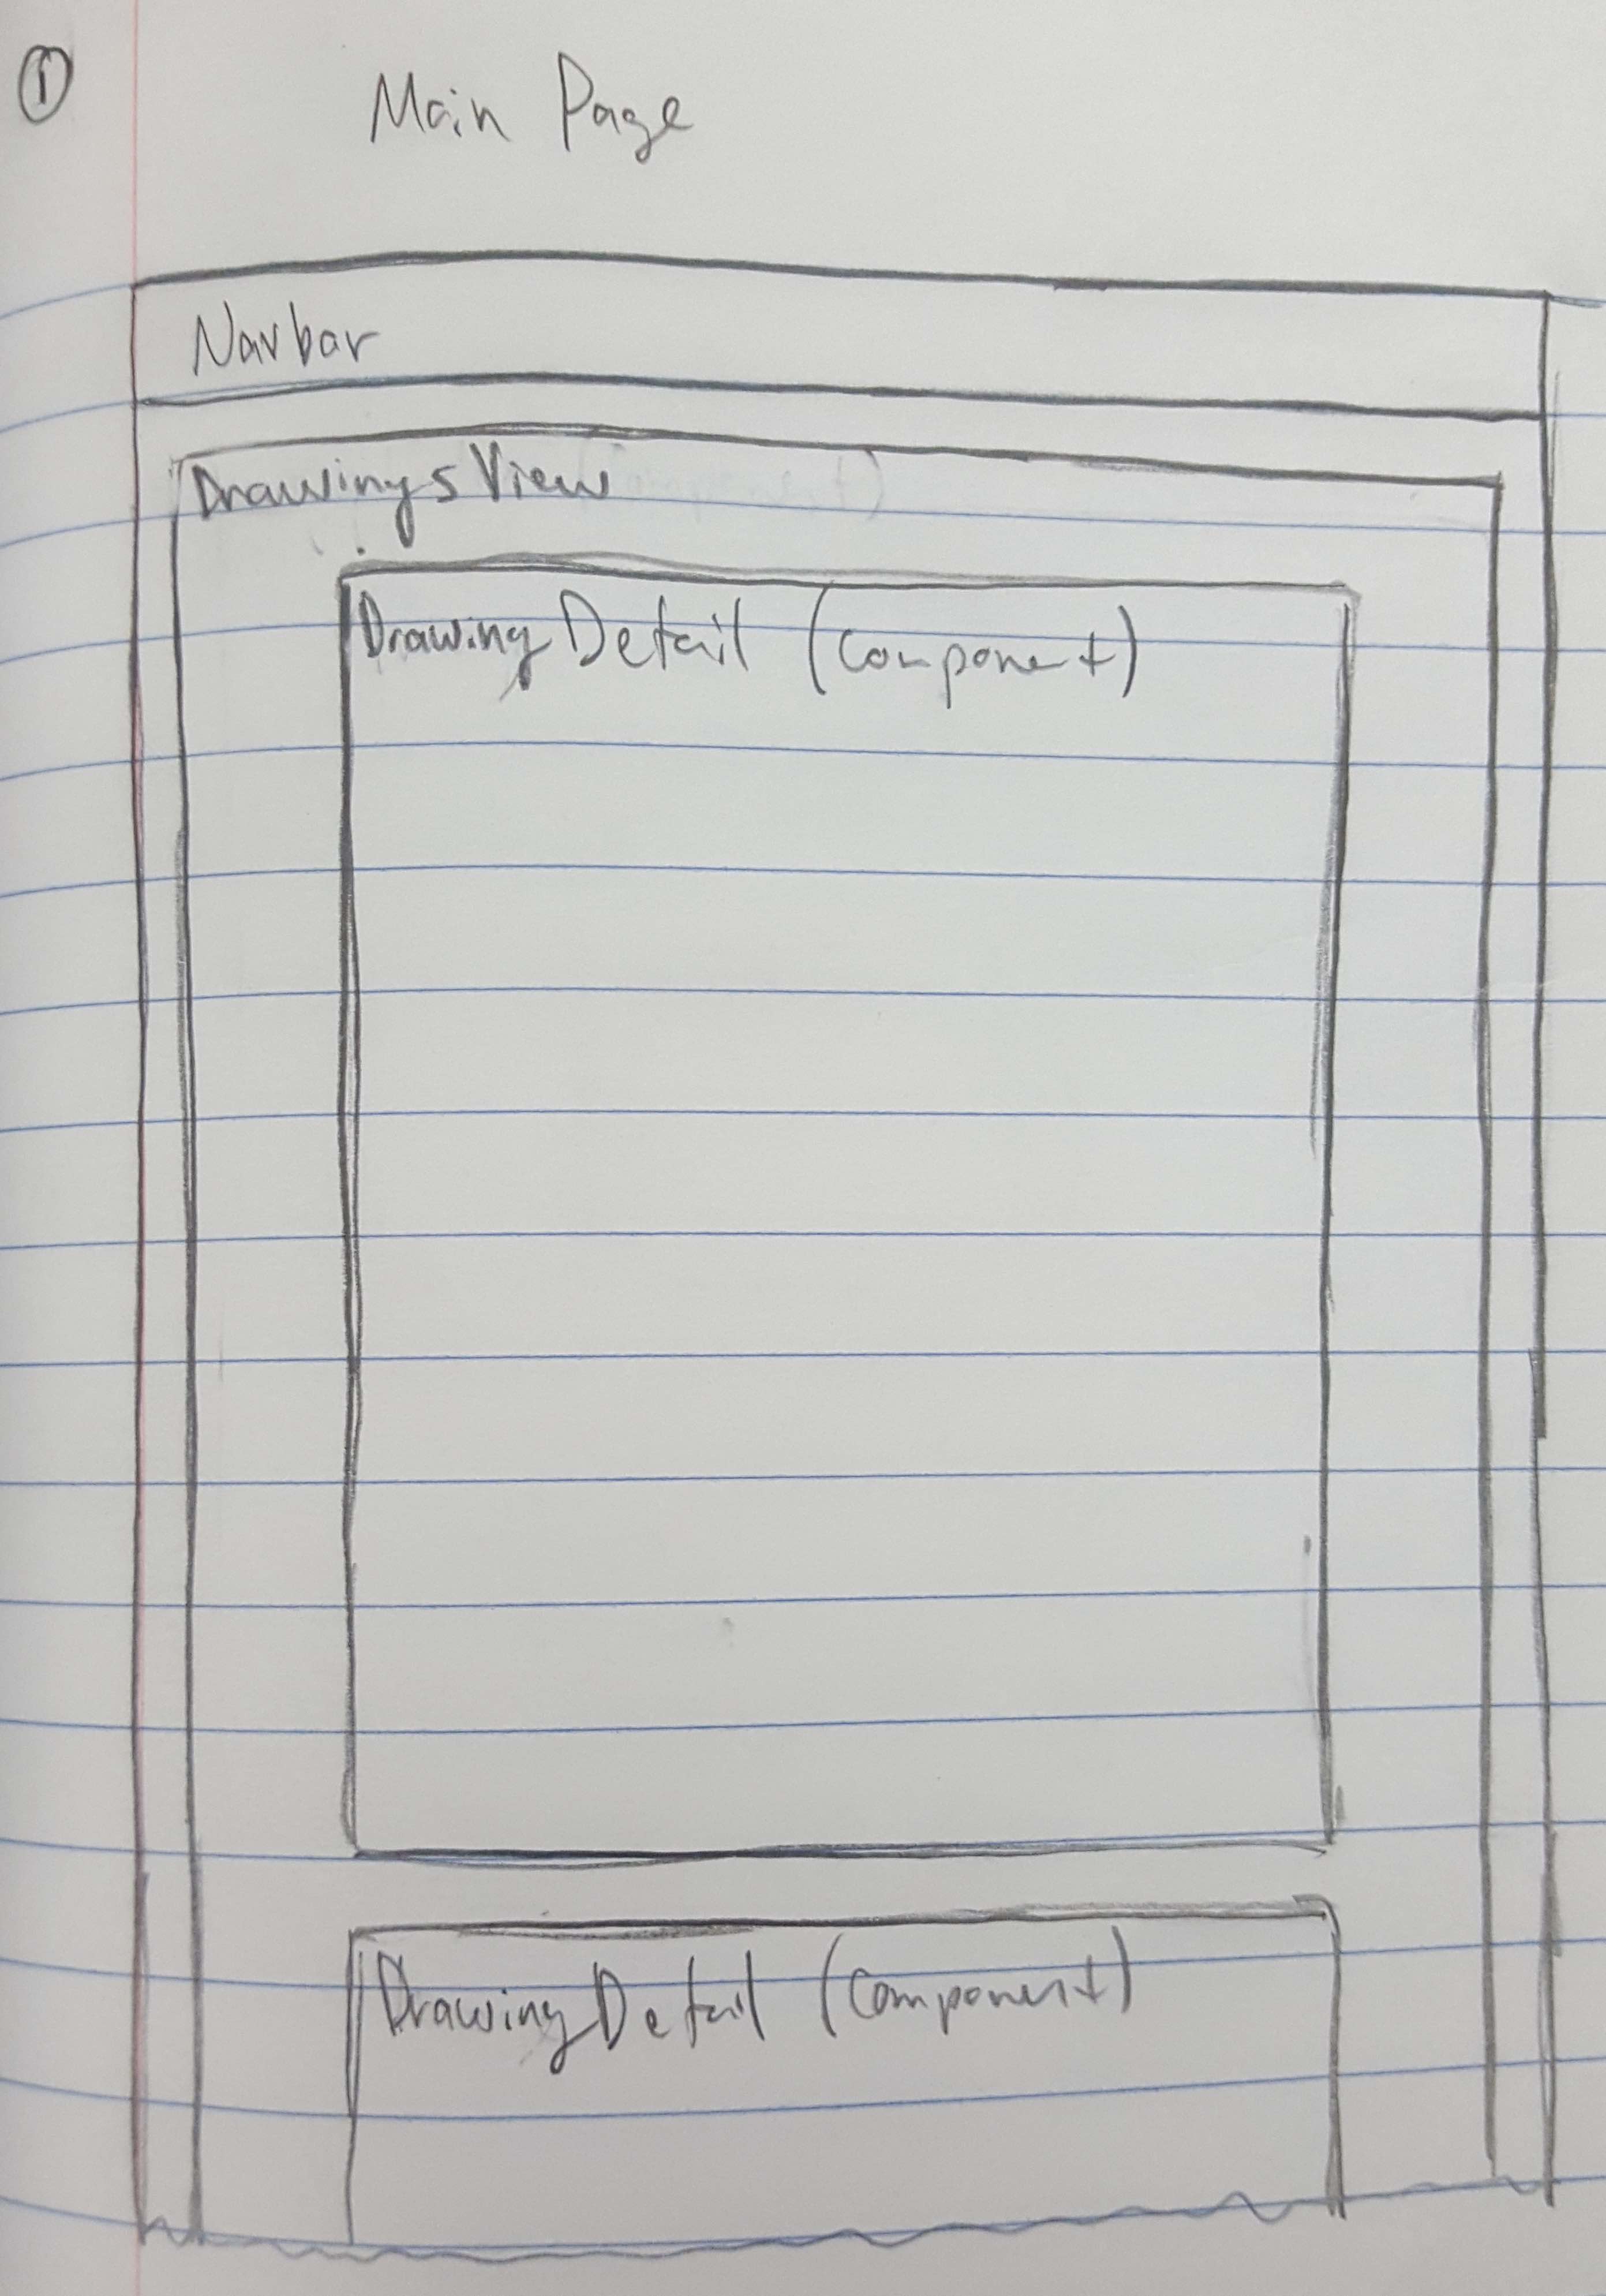 ①
Main Page
Navbar
DrawingsView
DrawingDetail (component)
DrawingDetail (component)